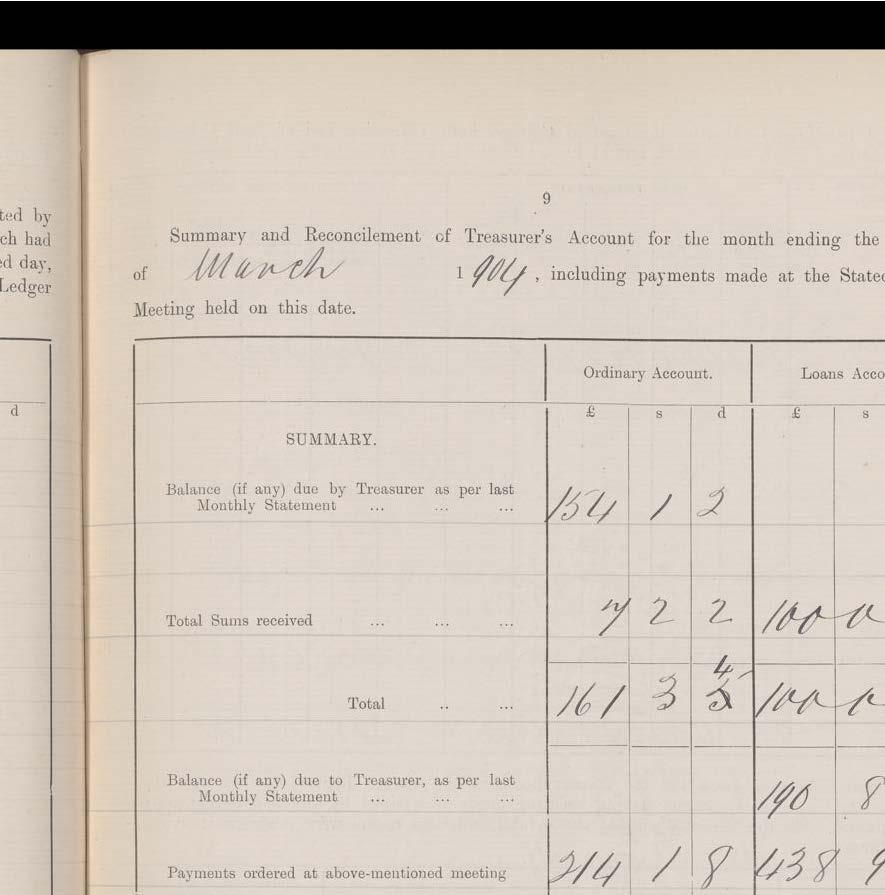 ted by
ch had
ed day,
Ledger
d
9
Summary and Reconcilement of Treasurer's Account for the month ending the
of March 1904, including payments made at the Stated
Meeting held on this date.
Ordinary Account. Loans Acco
£ s d £ s
SUMMARY.
Balance (if any) due by Treasurer as per last
Monthly Statement ... ... ... 154 1 2
Total Sums received ... ... ... 7 2 2 100 0
4
Total .. ... 161 3 100 0
Balance (if any) due to Treasurer, as per last
Monthly Statement ... ... ... 190 8
Payments ordered at above-mentioned meeting 214 1 8 438 9